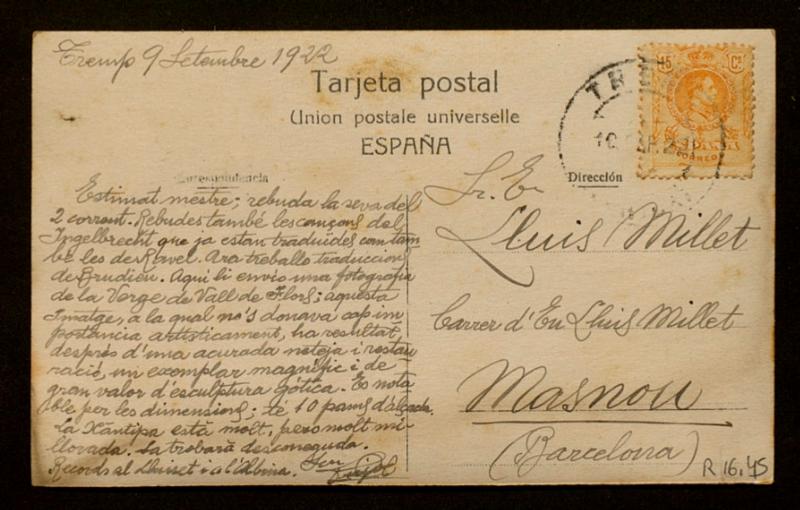 Tremp 9 Setembre 1922
Tarjeta postal
Union postale universelle
ESPAÑA
Correspondencia
Dirección
15 Cs
Estimat mestre; rebuda la seva del
2 corrent. Rebudes també les cançons del
Ingelbrecht que ja estan traduides com tam
bé les de Ravel. Ara treballo traduccions
de Brudieu. Aquí li envio una fotografia
de la Verge de Vall de Flors; aquesta
Imatge, a la qual no's donava cap im
portancia artisticament, ha resultat
desprès d'una acurada neteja i restau
ració, un exemplar magnific i de
gran valor d'esculptura gótica. Es nota
ble per les dimensions; té 10 pams d'alçada.
La Xantipa està molt, pero molt mi
llorada. La trobarà desconeguda.
Records al Lluiset i a l'Albina. Seu
Pujol
Sr. En
Lluis Millet
Carrer d'En Lluis Millet
Masnou
(Barcelona)
R 16.45